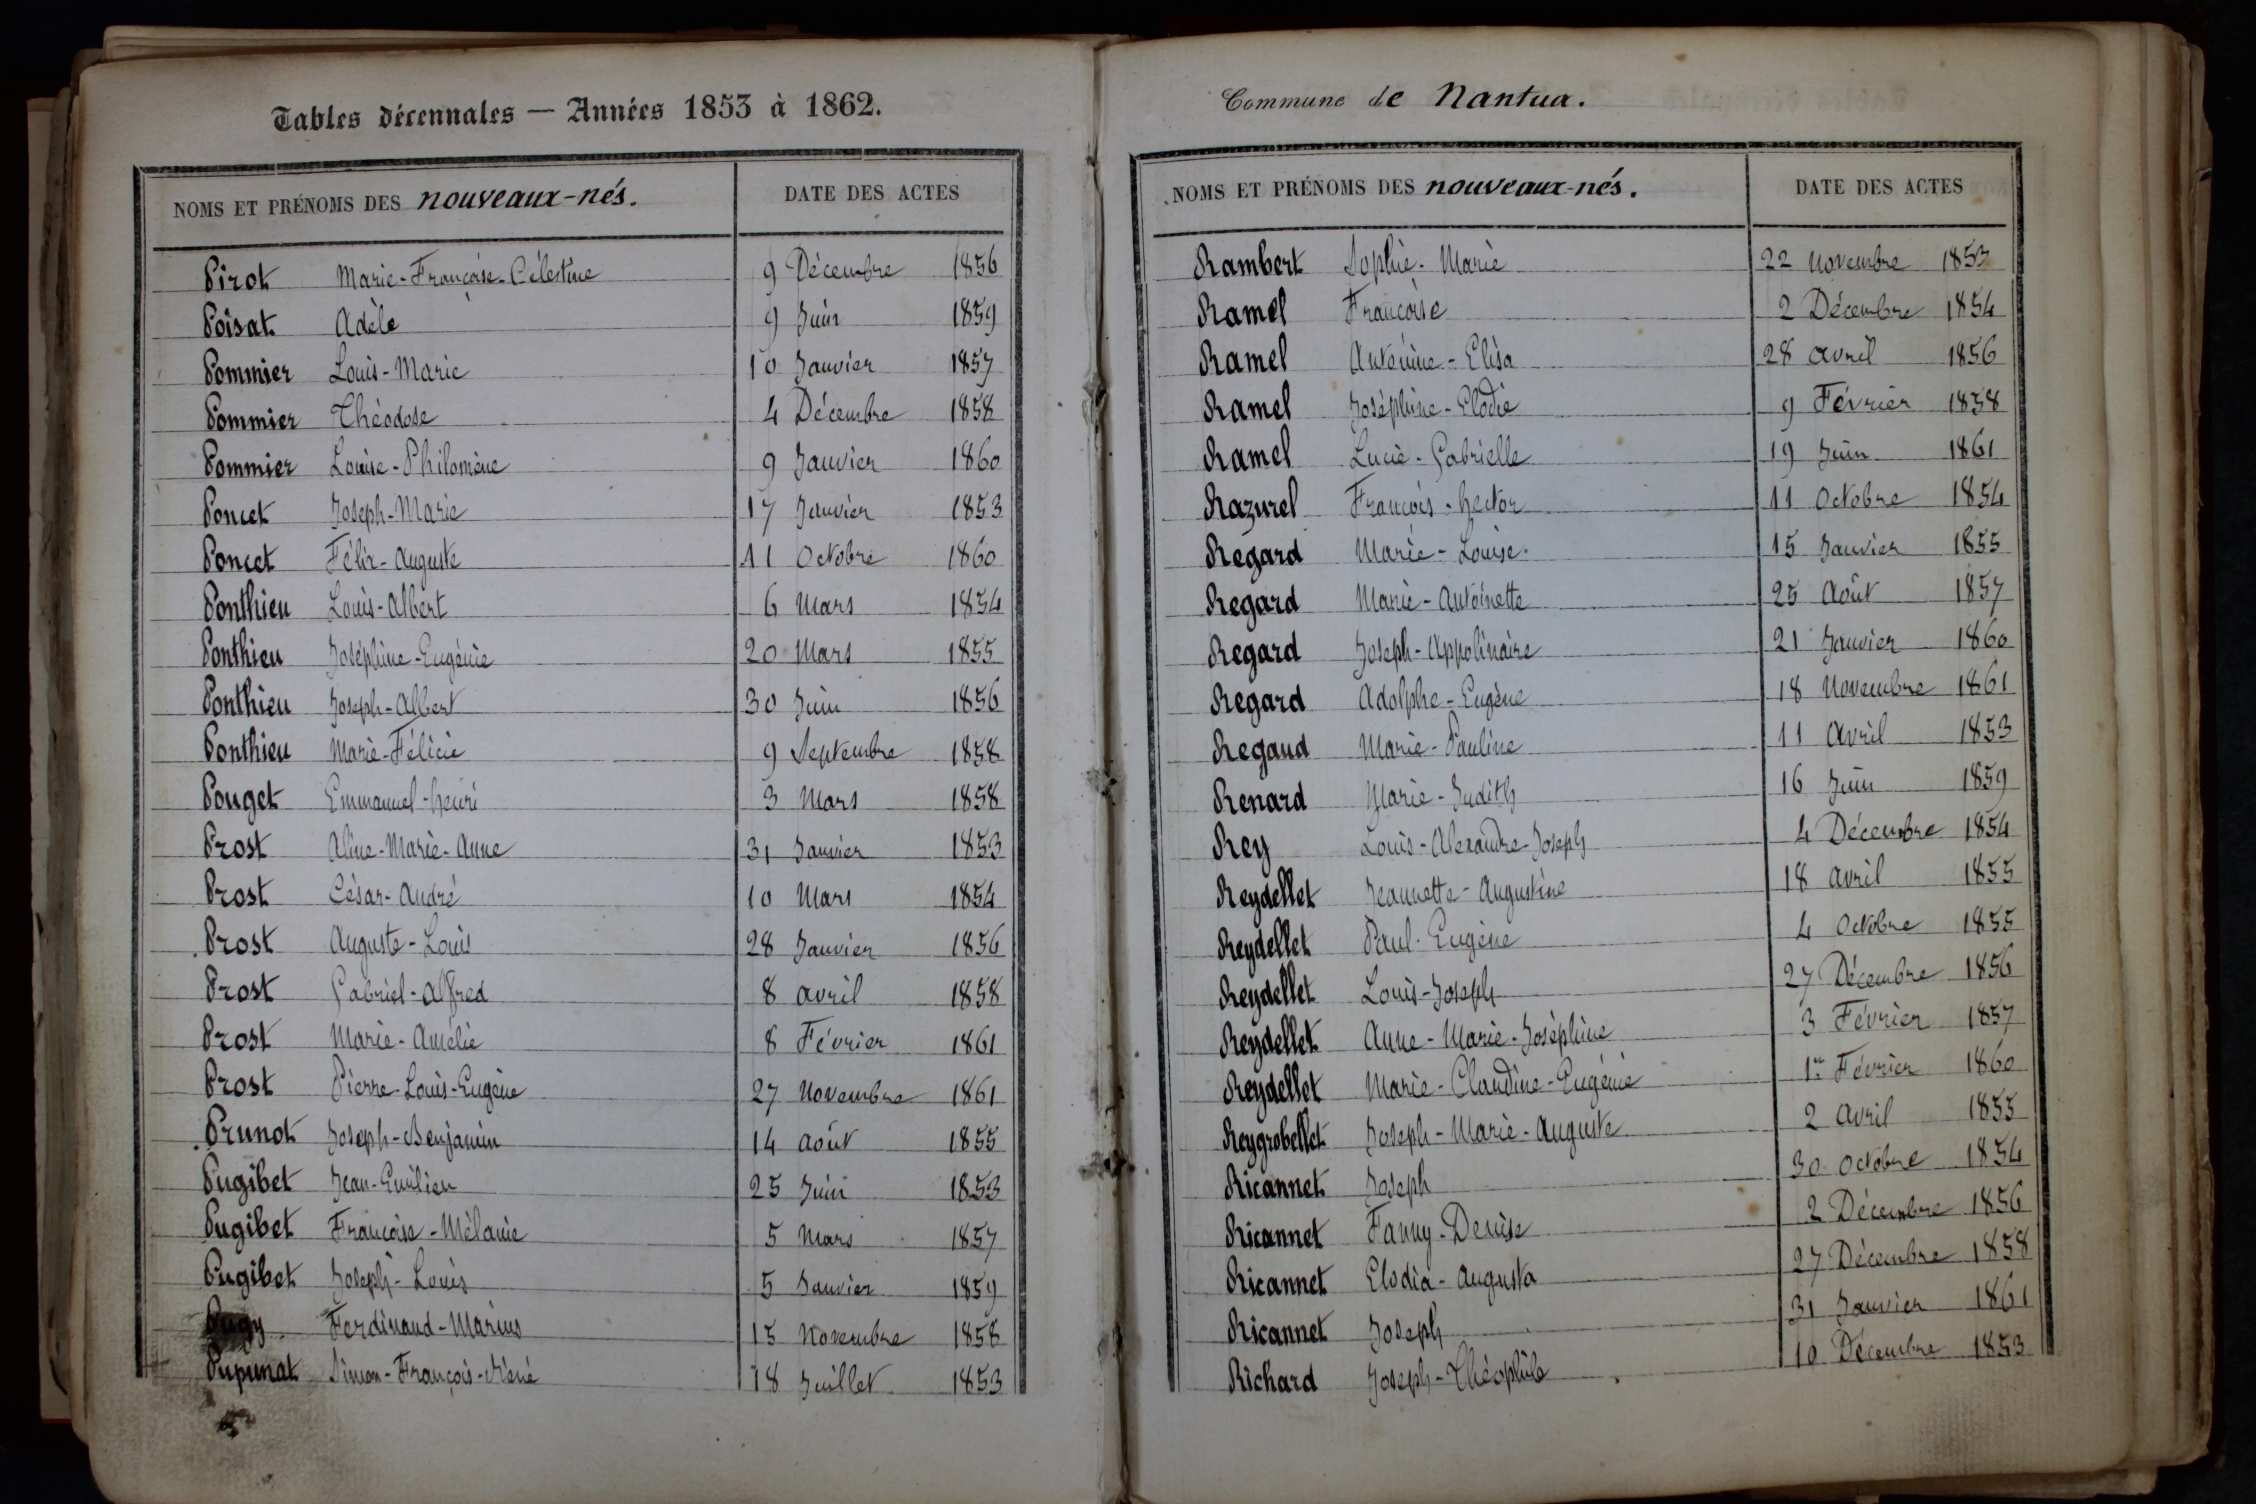 Tables décennales — Années 1853 à 1862.
NOMS ET PRÉNOMS DES nouveaux-nés. DATE DES ACTES
Pirot Marie-Françoise-Célestine 9 Décembre 1856
Poisat Adèle 9 Juin 1859
Pommier Louis-Marie 10 Janvier 1857
Pommier Théodose 4 Décembre 1858
Pommier Louise-Philomène 9 Janvier 1860
Poncet Joseph-Marie 17 Janvier 1853
Poncet Félix-Auguste 11 Octobre 1860
Ponthieu Louis-Albert 6 Mars 1854
Ponthieu Joséphine-Eugénie 20 Mars 1855
Ponthieu Joseph-Albert 30 Juin 1856
Ponthieu Marie-Félicie 9 Septembre 1858
Pouget Emmanuel-henri 3 Mars 1858
Prost Aline-Marie-Anne 31 Janvier 1853
Prost César-André 10 Mars 1854
Prost Auguste-Louis 28 Janvier 1856
Prost Gabriel-Alfred 8 avril 1858
Prost Marie-Amélie 8 Février 1861
Prost Pierre-Louis-Eugène 27 Novembre 1861
Prunot Joseph-Benjamin 14 août 1855
Pugibet Jean-Emilien 25 Juin 1853
Pugibet Françoise-Mélanie 5 Mars 1857
Pugibet Joseph-Louis 5 Janvier 1859
Ferdinand-Marius 15 Novembre 1858
Pupunat Simon-François-Réné 18 Juillet 1853
Commune de Nantua.
NOMS ET PRÉNOMS DES nouveaux-nés. DATE DES ACTES
Rambert Sophie-Marie 22 Novembre 1853
Ramel Françoise 2 Décembre 1854
Ramel Antonine-Elisa 28 avril 1856
Ramel Joséphine-Elodie 9 Février 1858
Ramel Lucie-Gabrielle 19 Juin 1861
Razurel François-hector 11 Octobre 1854
Regard Marie-Louise. 15 Janvier 1855
Regard Marie-Antoinette 25 Août 1857
Regard Joseph-Appolinaire 21 Janvier 1860
Regard Adolphe-Eugène 18 Novembre 1861
Regaud Marie-Pauline 11 Avril 1853
Renard Marie-Judith 16 Juin 1859
Rey Louis-Alexandre-Joseph 4 Décembre 1854
Reydellet Jeannette-Augustine 18 avril 1855
Reydellet Paul-Eugène 4 Octobre 1855
Reydellet Louis-Joseph 27 Décembre 1856
Reydellet Anne-Marie-Joséphine 3 Février 1857
Reydellet Marie-Claudine-Eugénie 1er Février 1860
Reygrobellet Joseph-Marie-Auguste 2 avril 1855
Ricannet Joseph 30 Octobre 1854
Ricannet Fanny-Denise 2 Décembre 1856
Ricannet Elodia-Augusta 27 Décembre 1858
Ricannet Joseph 31 Janvier 1861
Richard Joseph-Théophile 10 Décembre 1853